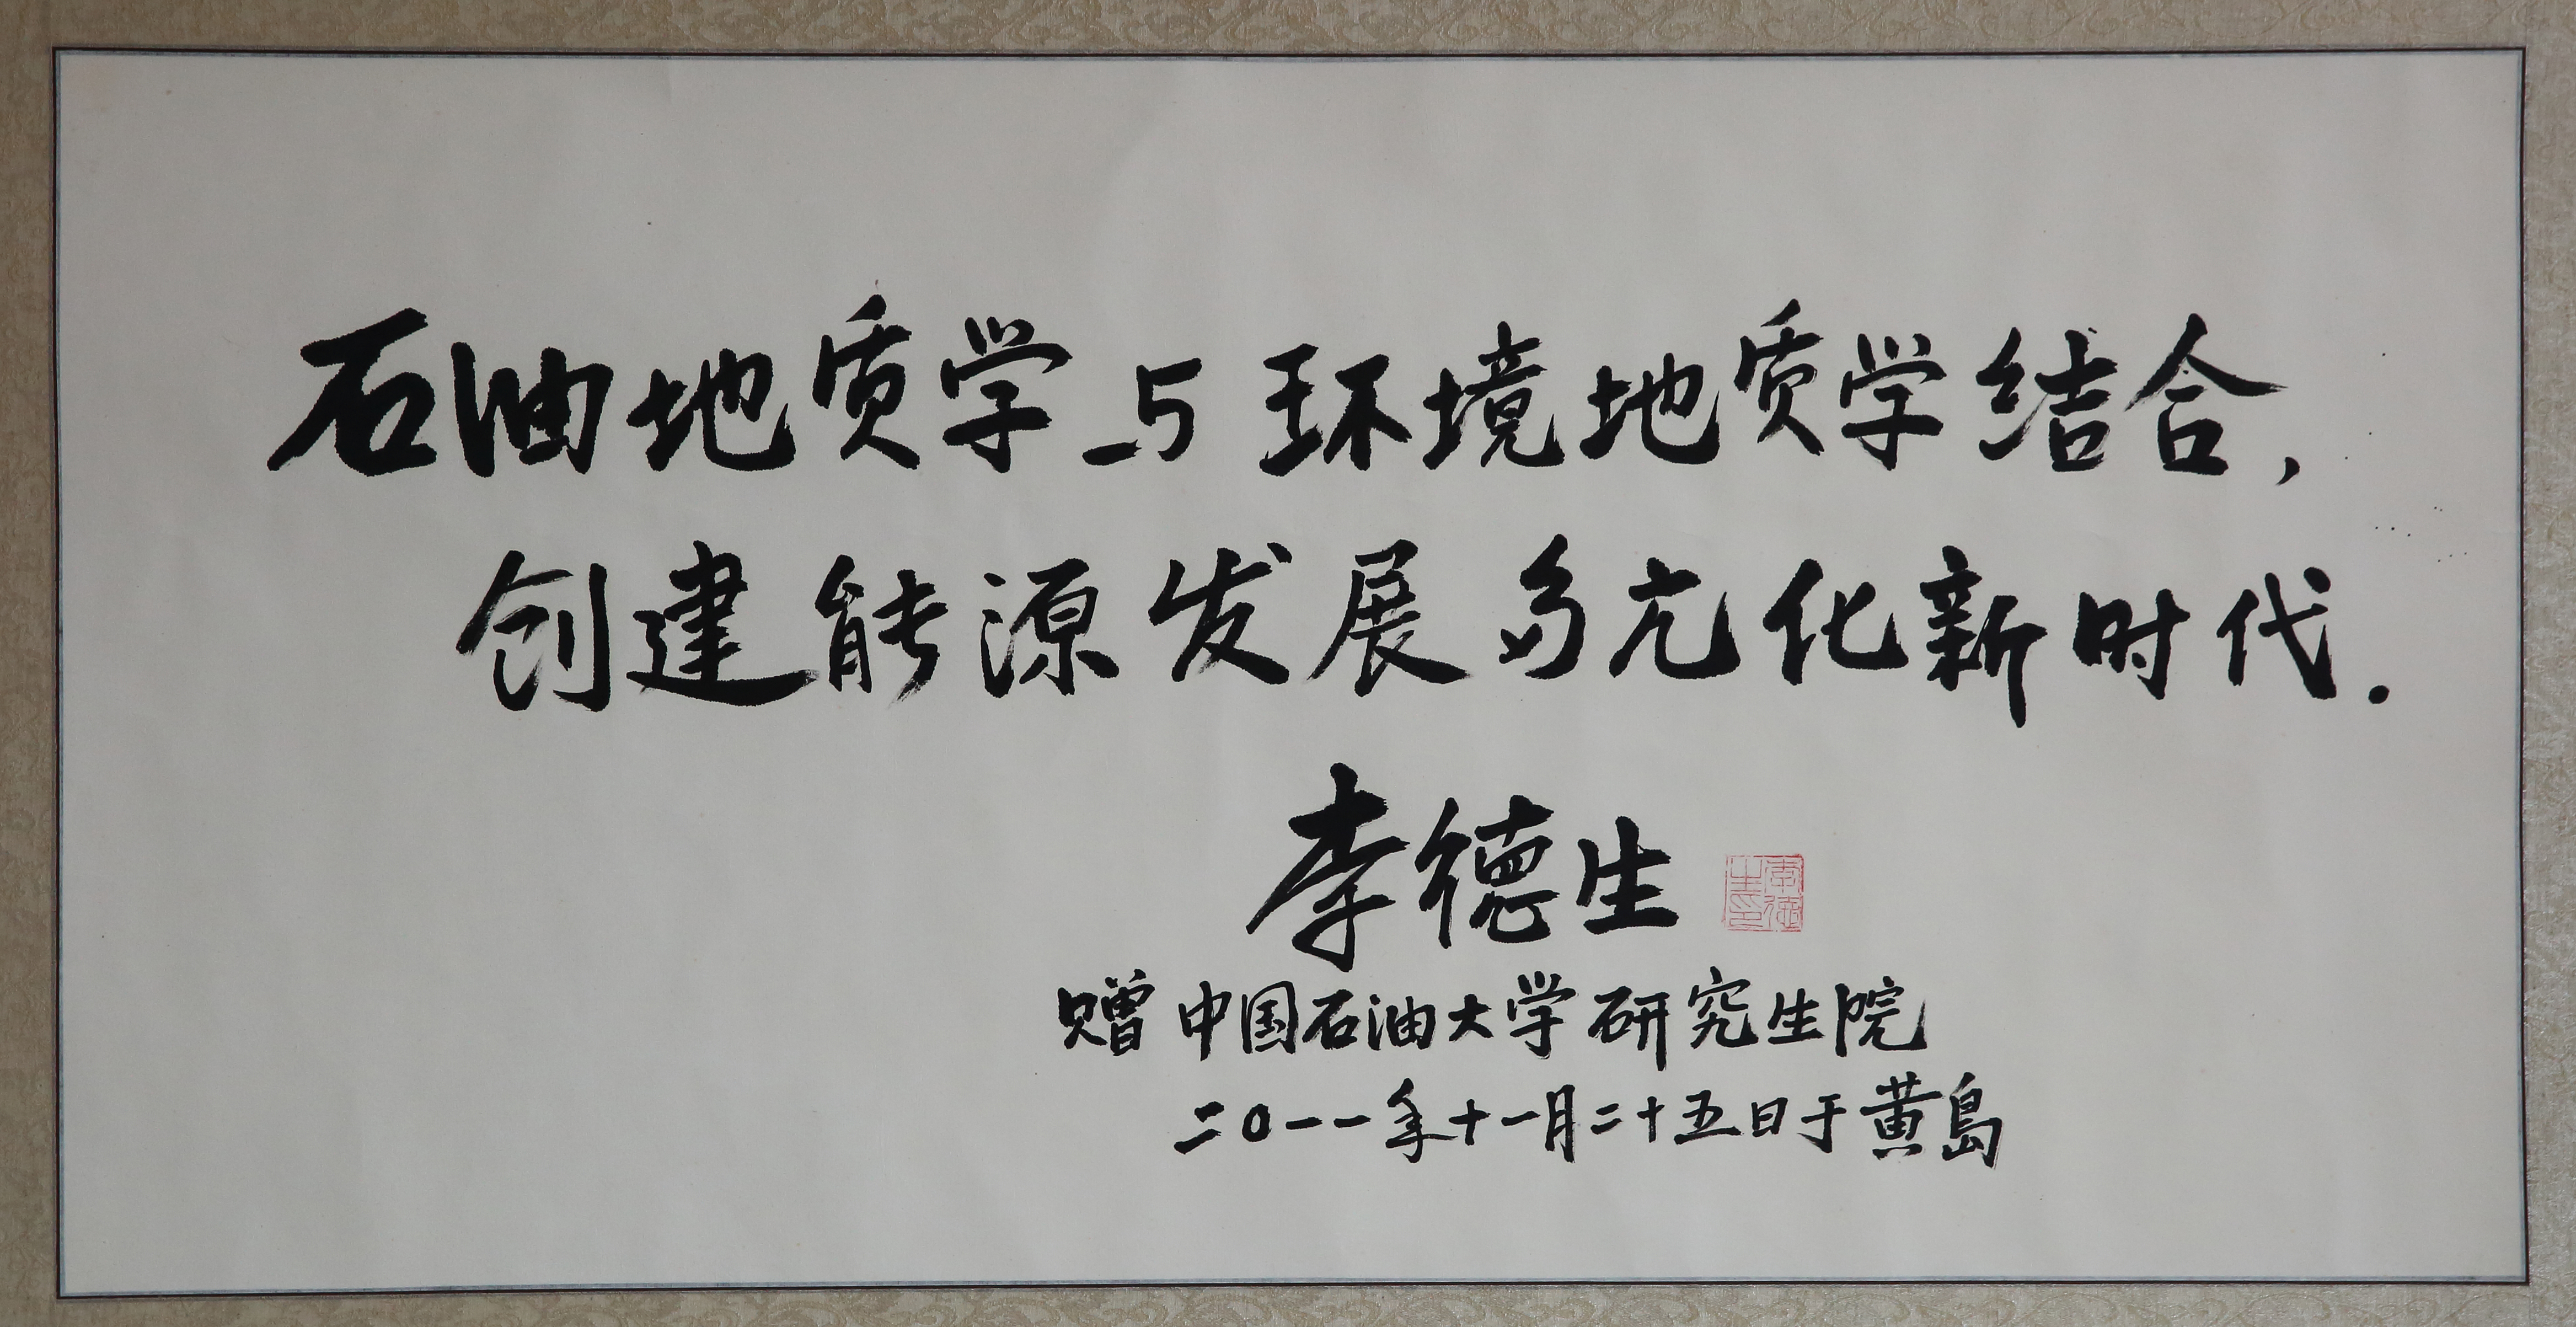 石油地质学与环境地质学结合，
创建能源发展多元化新时代.
李德生
李德生印
赠中国石油大学研究生院
二〇一一年十一月二十五日于黄島